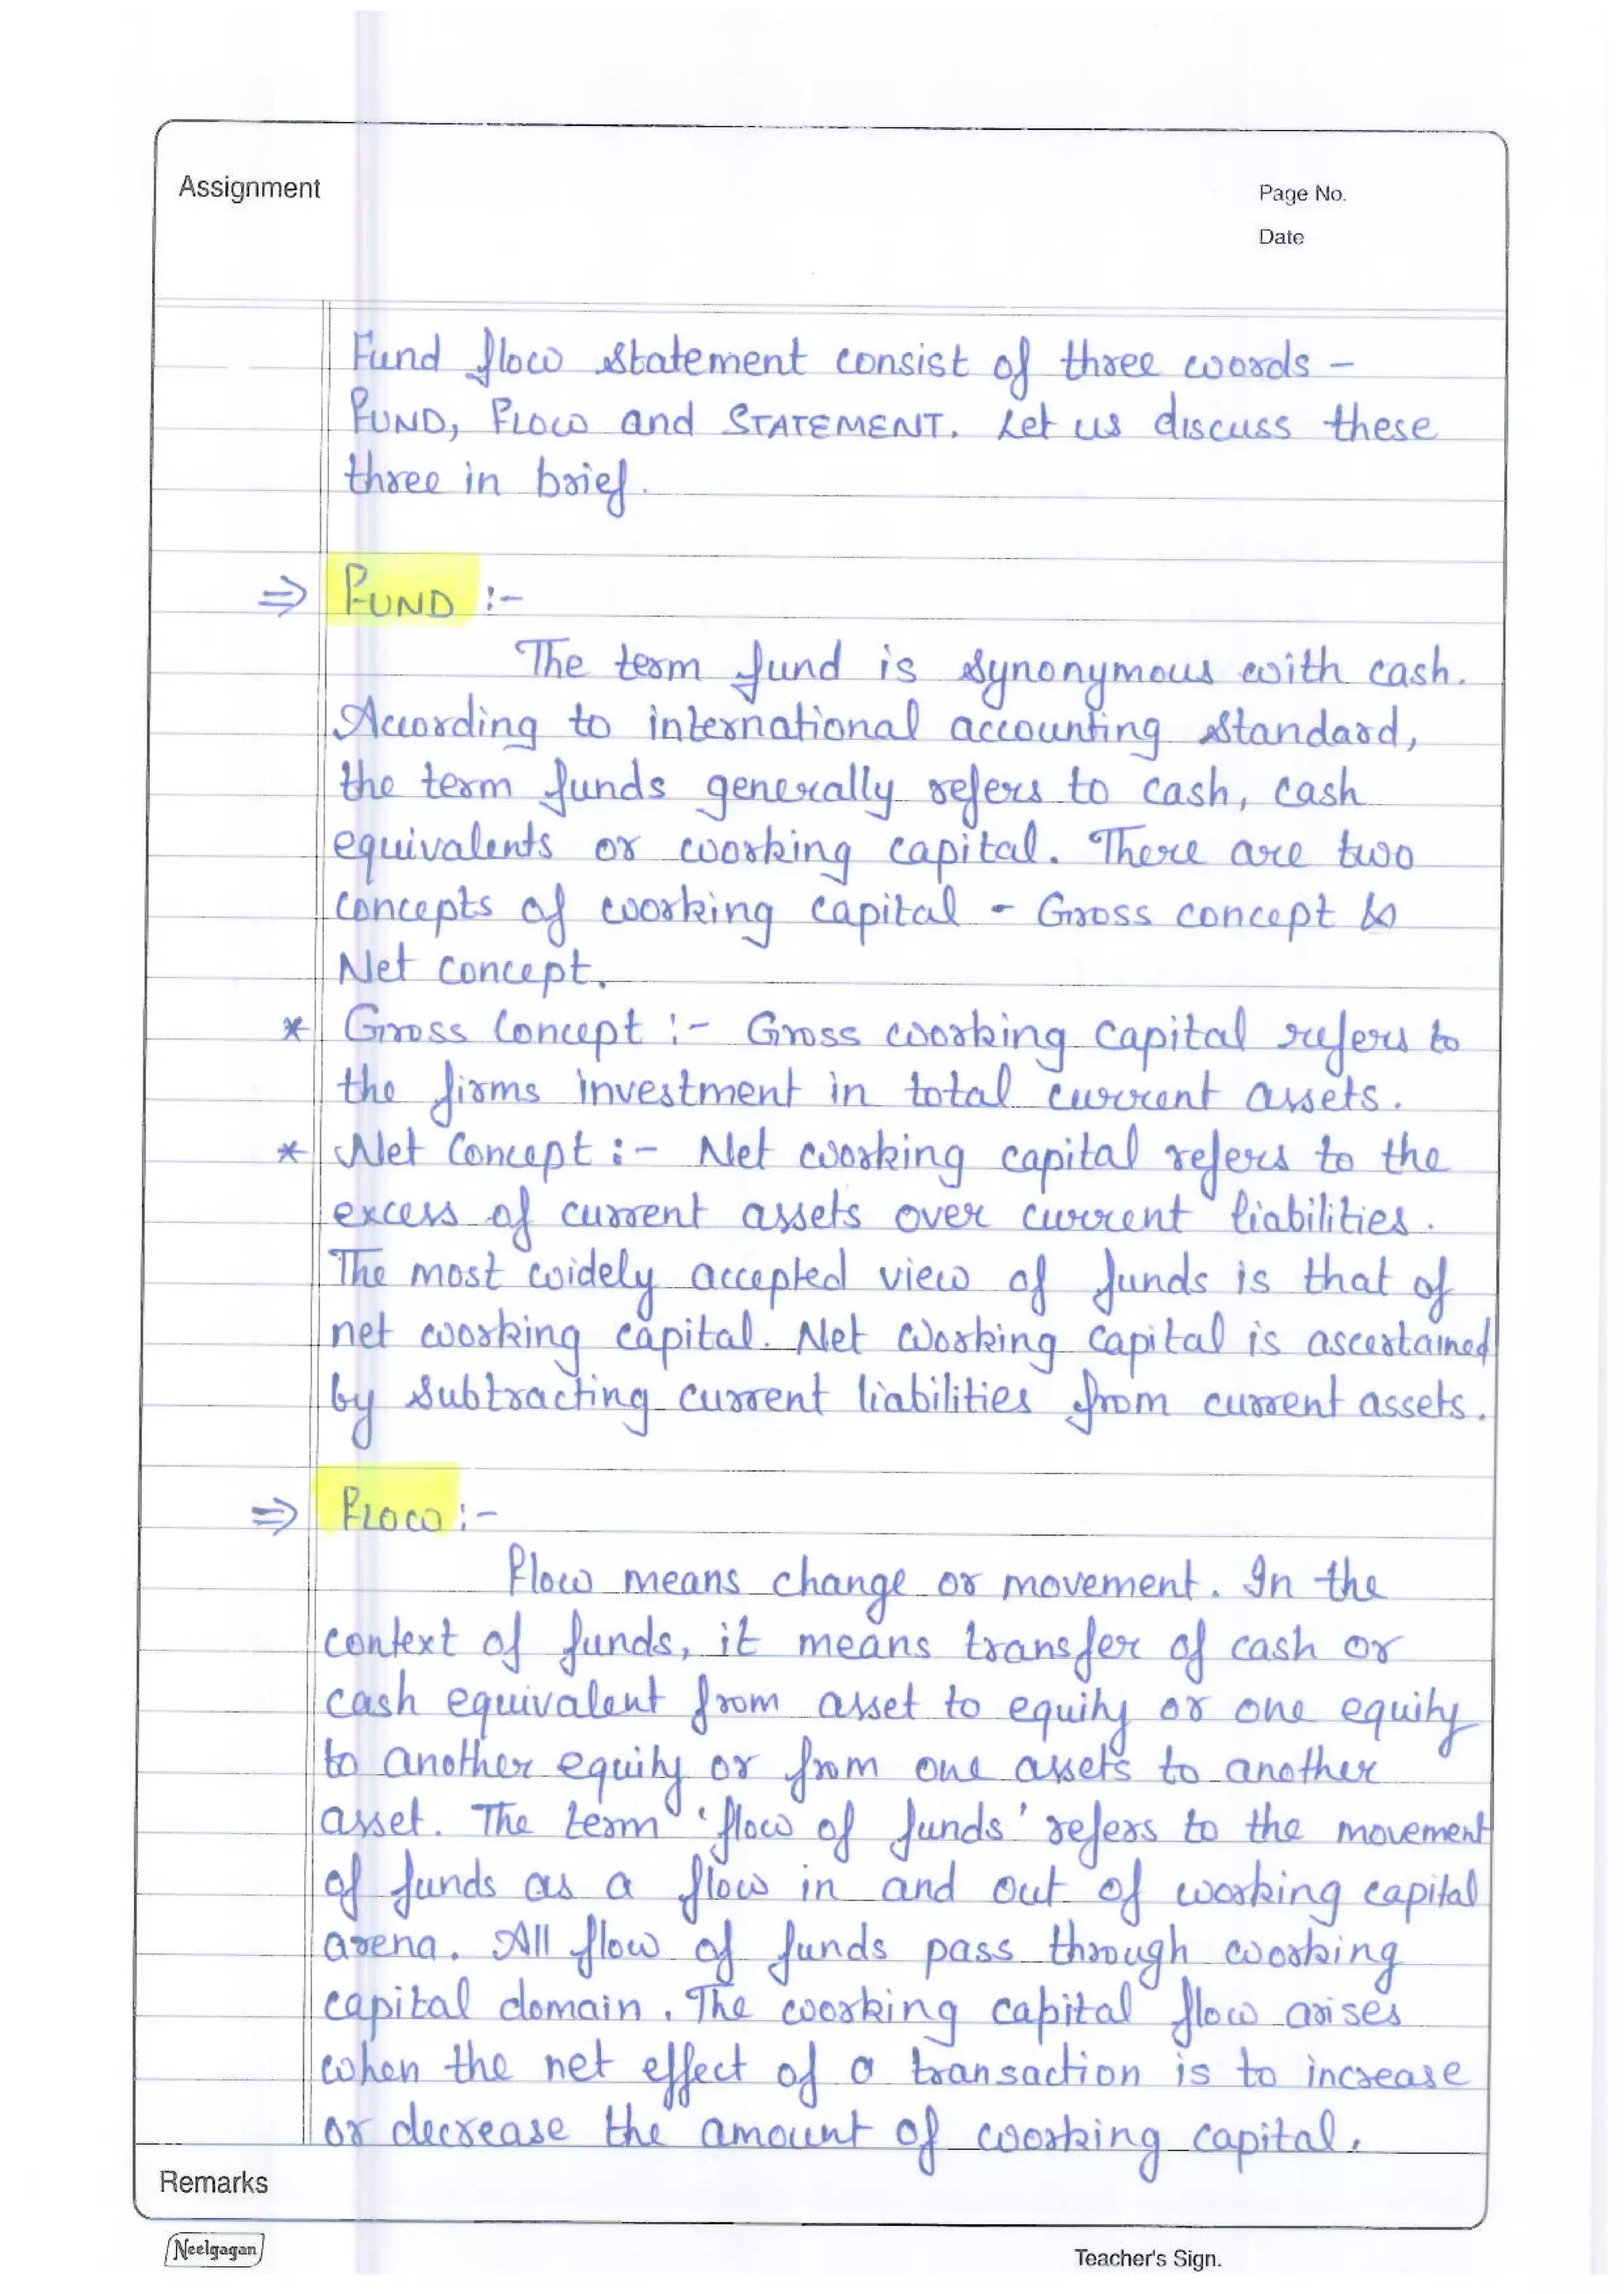 Assignment
Page No.
Date
Fund flow statement consist of three words -
FUND, FLOW and STATEMENT. Let us discuss these
three in brief.
⇒ FUND :-
The term fund is synonymous with cash.
According to international accounting standard,
the term funds generally refers to cash, cash
equivalents or working capital. There are two
concepts of working capital - Gross concept &
Net concept.
* Gross Concept :- Gross working capital refers to
the firms investment in total current assets.
* Net Concept :- Net working capital refers to the
excess of current assets over current liabilities.
The most widely accepted view of funds is that of
net working capital. Net working capital is ascertained
by subtracting current liabilities from current assets.
⇒ FLOW :-
Flow means change or movement. In the
context of funds, it means transfer of cash or
cash equivalent from asset to equity or one equity
to another equity or from one assets to another
asset. The term 'flow of funds' refers to the movement
of funds as a flow in and out of working capital
arena. All flow of funds pass through working
capital domain. The working capital flow arises
when the net effect of a transaction is to increase
or decrease the amount of working capital.
Remarks
Neelgagan
Teacher's Sign.